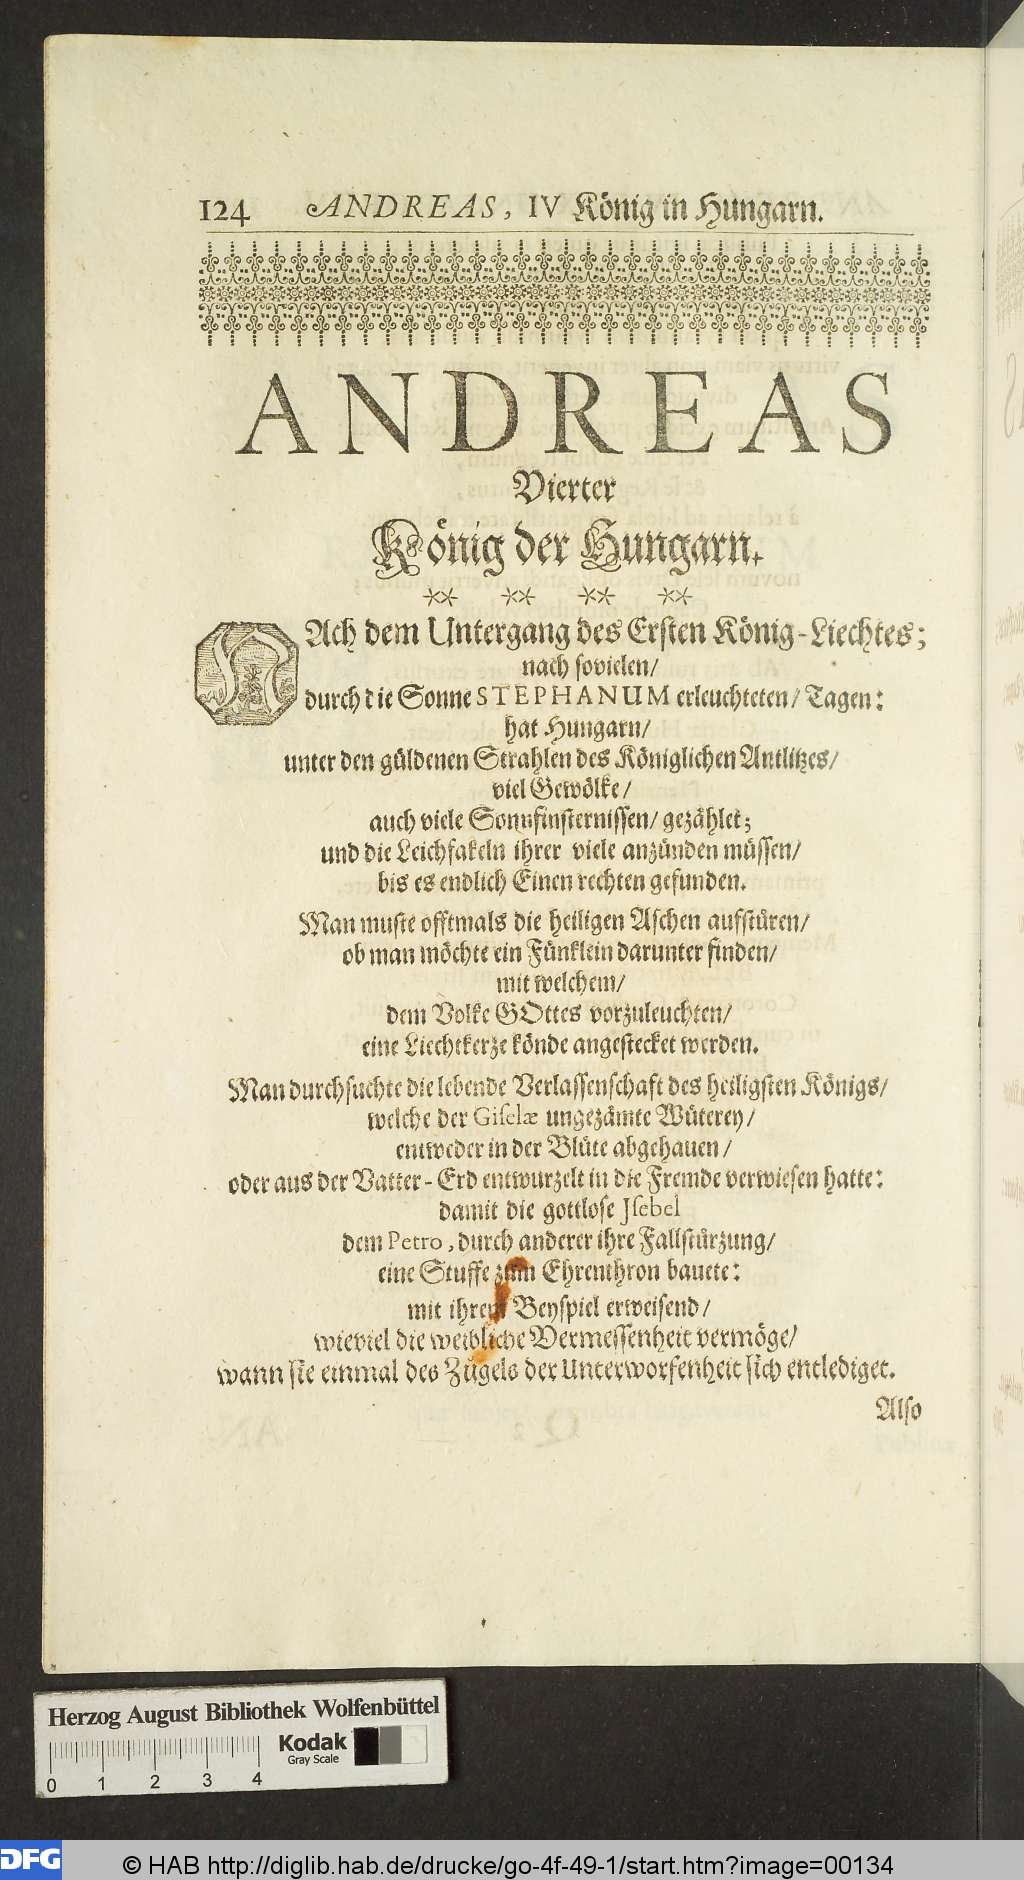 124 ANDREAS, IV König in Hungarn.
ANDREAS
Vierter
König der Hungarn.
** ** ** **
NAch dem Untergang des Ersten König-Liechtes;
nach sovielen/
durch die Sonne STEPHANUM erleuchteten/ Tagen:
hat Hungarn/
unter den güldenen Strahlen des Königlichen Antlitzes/
viel Gewölke/
auch viele Sonnfinsternissen/ gezählet;
und die Leichfakeln ihrer viele anzünden müssen/
bis es endlich Einen rechten gefunden.
Man muste offtmals die heiligen Aschen aufstüren/
ob man möchte ein Fünklein darunter finden/
mit welchem/
dem Volke GOttes vorzuleuchten/
eine Liechtkerze könde angestecket werden.
Man durchsuchte die lebende Verlassenschaft des heiligsten Königs/
welche der Giselæ ungezämte Wüterey/
entweder in der Blüte abgehauen/
oder aus der Vatter-Erd entwurzelt in die Fremde verwiesen hatte:
damit die gottlose Jsebel
dem Petro, durch anderer ihre Fallstürzung/
eine Stuffe zum Ehrenthron bauete:
mit ihrem Beyspiel erweisend/
wieviel die weibliche Vermessenheit vermöge/
wann sie einmal des Zügels der Unterworfenheit sich entlediget.
Also
Herzog August Bibliothek Wolfenbüttel
Kodak
Gray Scale
0 1 2 3 4
DFG © HAB http://diglib.hab.de/drucke/go-4f-49-1/start.htm?image=00134